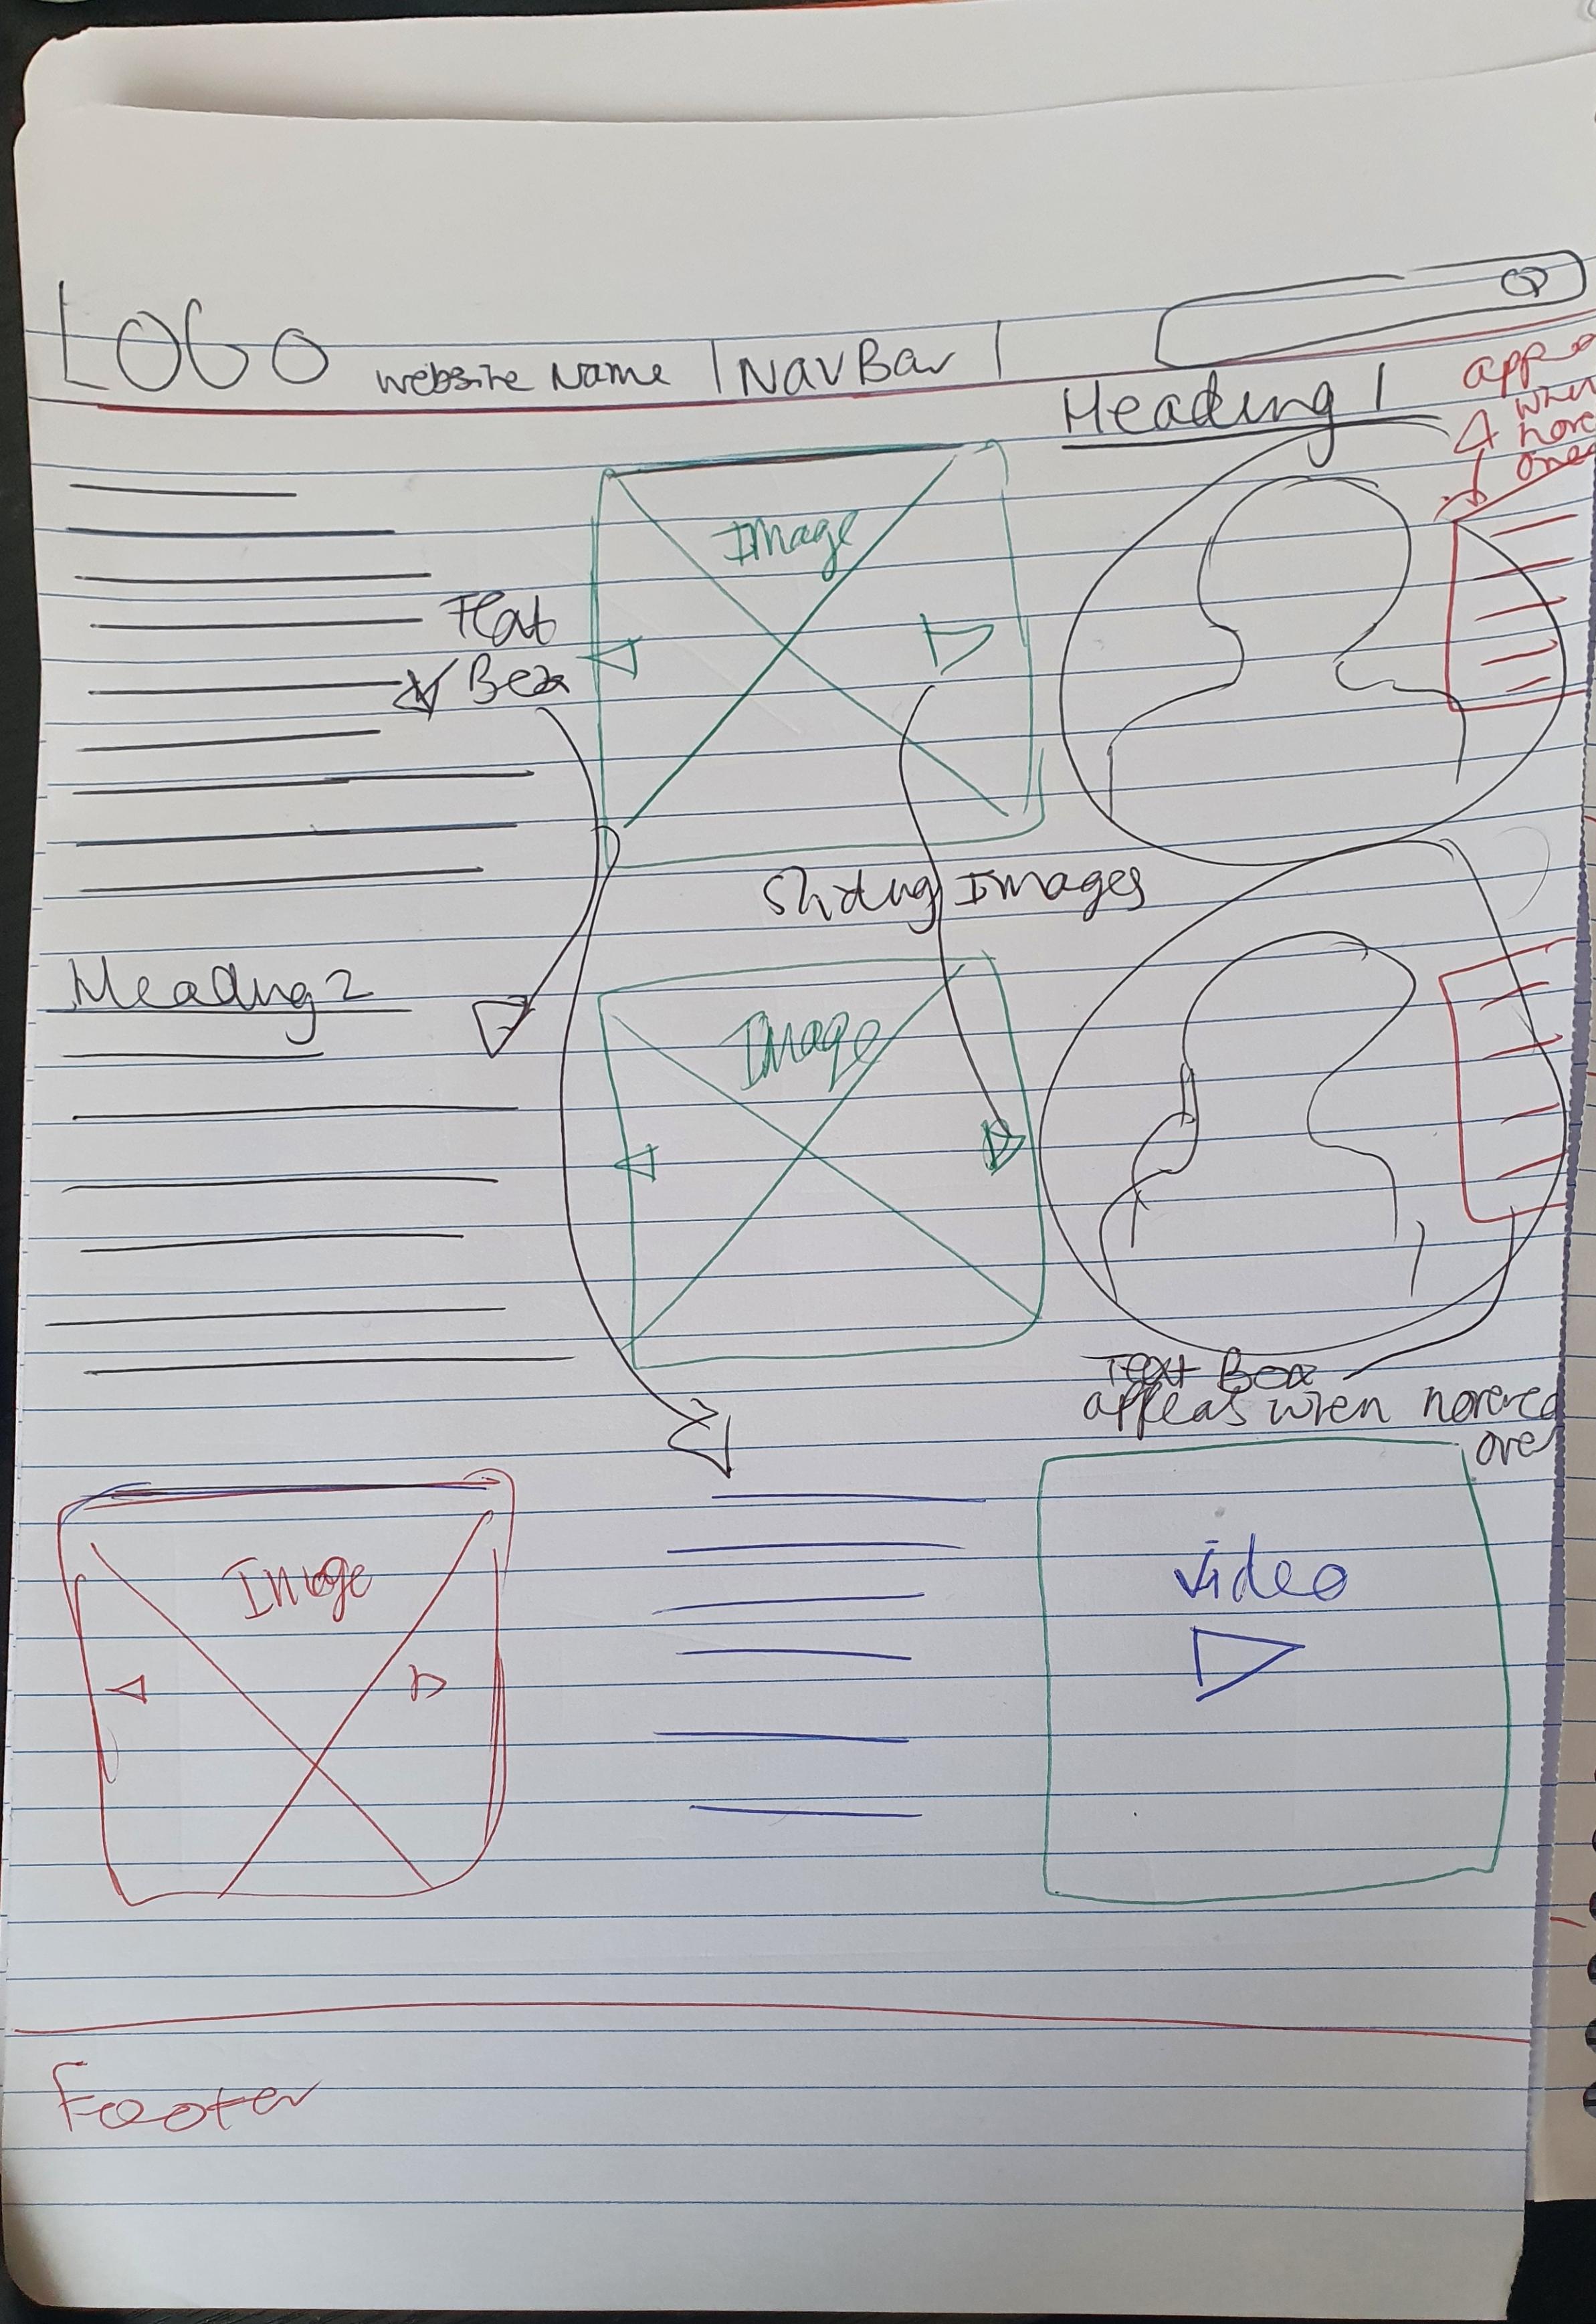 LOGO website Name | NavBar |
Heading 1
when
Image
Text
Box
Sliding Images
Heading 2
Image
Text Box
appears when hovered
over
Image
video
Footer